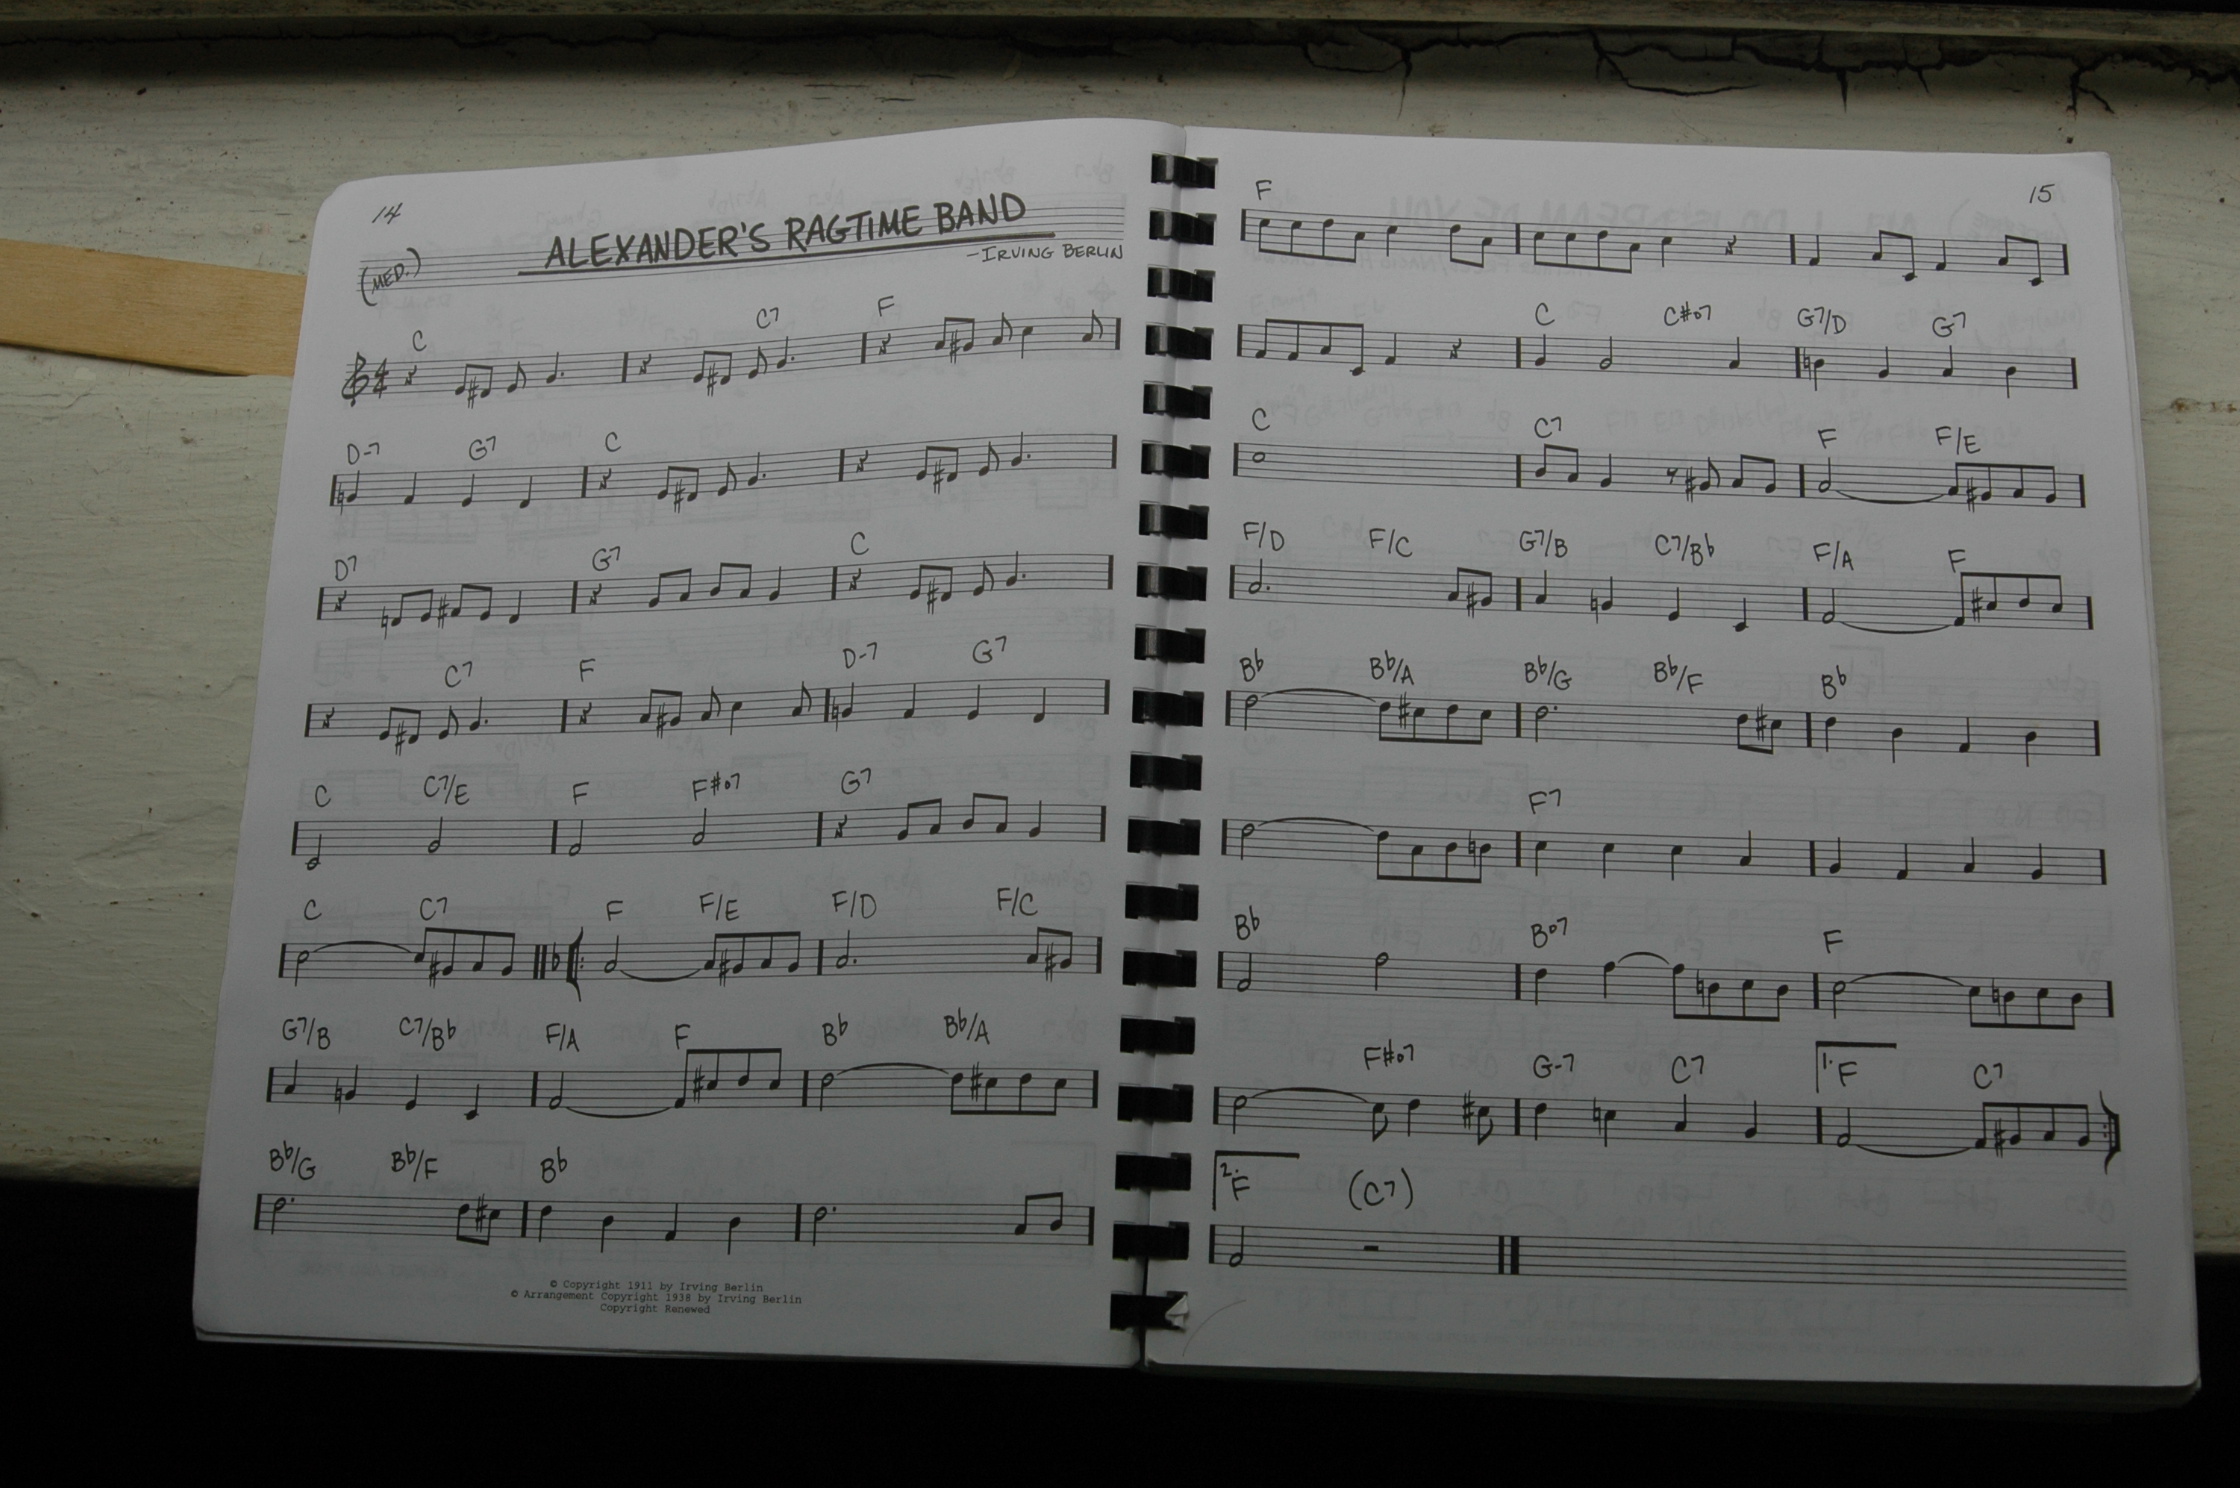 14
ALEXANDER'S RAGTIME BAND
(MED.)
-IRVING BERLIN
C C7 F
4 4
D-7 G7 C
D7 G7 C
C7 F D-7 G7
C C7/E F F#o7 G7
C C7 F F/E F/D F/C
G7/B C7/Bb F/A F Bb Bb/A
Bb/G Bb/F Bb
© Copyright 1911 by Irving Berlin
© Arrangement Copyright 1938 by Irving Berlin
Copyright Renewed
15
F
C C#o7 G7/D G7
C C7 F F/E
F/D F/C G7/B C7/Bb F/A F
Bb Bb/A Bb/G Bb/F Bb
F7
Bb Bo7 F
F#o7 G-7 C7 1. F C7
2. F (C7)